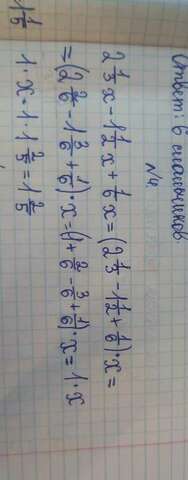 Ответ: 6 спальников
№4
2 1/3 x - 1 1/2 x + 1/6 x = (2 1/3 - 1 1/2 + 1/6) · x =
= (2 2/6 - 1 3/6 + 1/6) · x = (1 + 2/6 - 3/6 + 1/6) · x = 1 · x
1 · x = 1 · 1 2/5 = 1 2/5